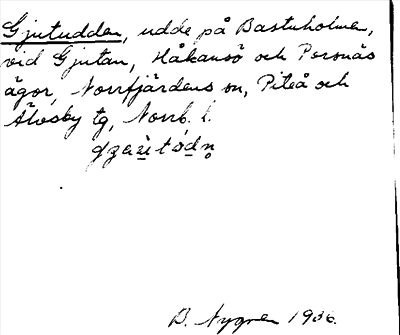 Gjutudden, udde på Bastuholmen,
vid Gjutan, Håkansö och Porsnäs
ägor, Norrfjärdens sn, Piteå och
Älvsby tg, Norrb. l.
B. Nygren 1936.